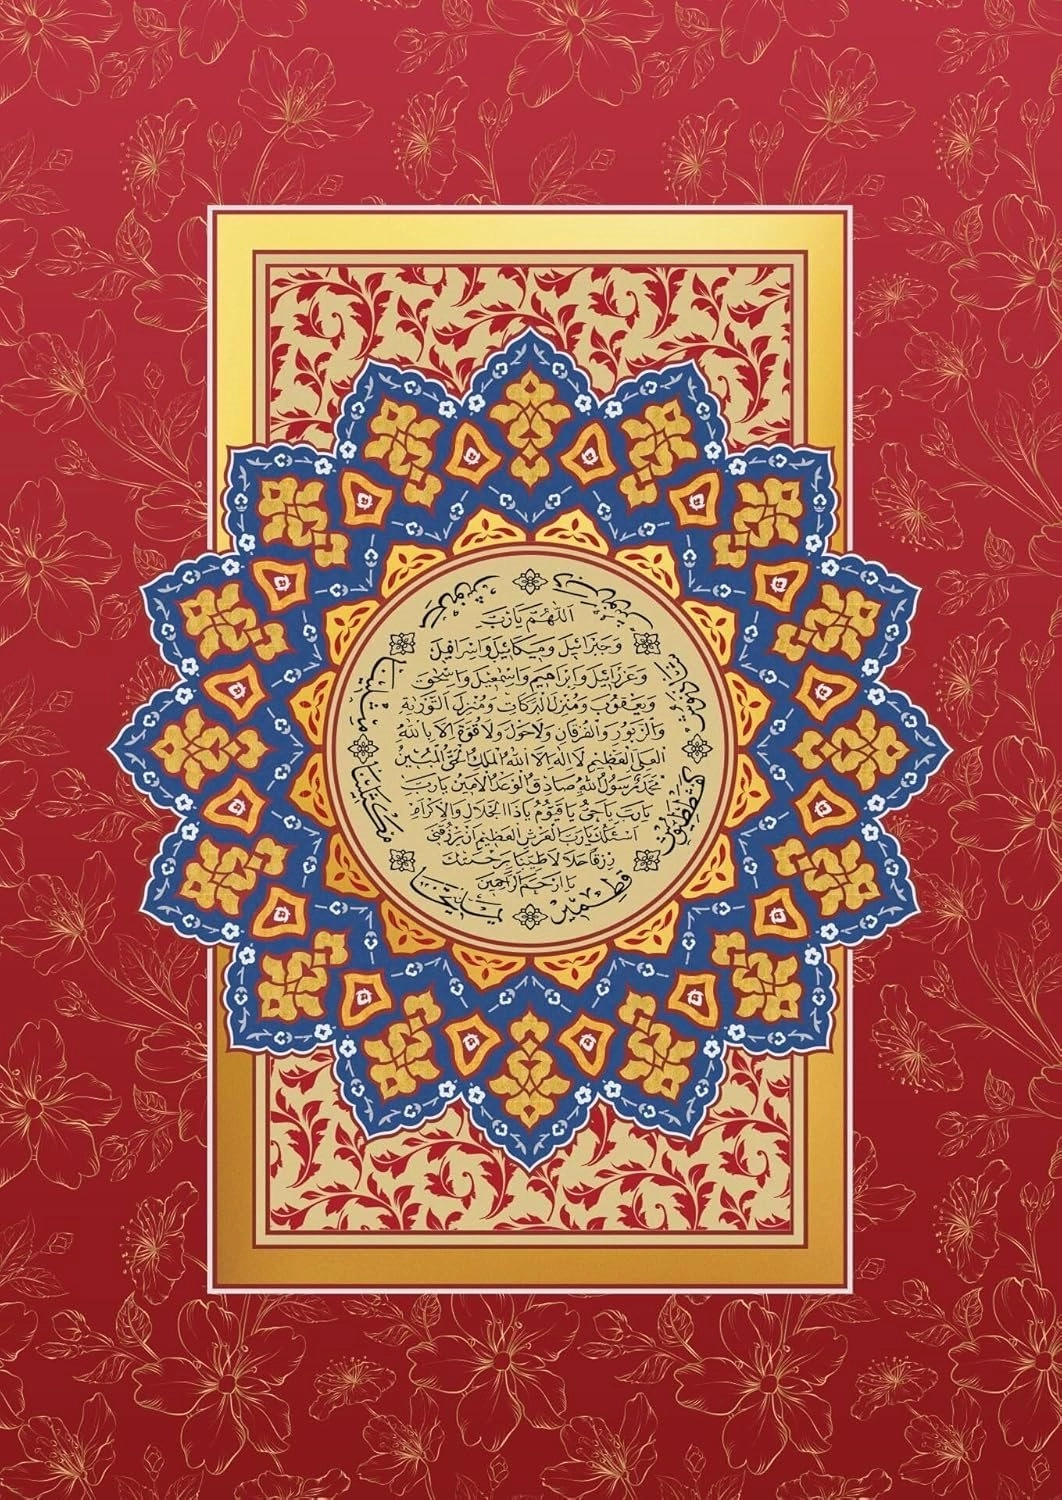 اَللّٰهُمَّ يَارَبَّ
وَجَبْرَائِيلَ وَمِيكَائِيلَ وَاِسْرَافِيلَ
وَعَزْرَائِيلَ وَاِبْرَاهِيمَ وَاِسْمٰعِيلَ وَاِسْحٰقَ
وَيَعْقُوبَ وَمُنْزِلَ الْبَرَكَاتِ وَمُنْزِلَ التَّوْرٰيةِ
وَالزَّبُورِ وَالْفُرْقَانِ وَلَاحَوْلَ وَلَاقُوَّةَ اِلَّا بِاللّٰهِ
الْعَلِىِّ الْعَظِيمِ لَااِلٰهَ اِلَّا اللّٰهُ الْمَلِكُ الْحَقُّ الْمُبِينُ
مُحَمَّدٌ رَسُولُ اللّٰهِ صَادِقُ الْوَعْدِ الْاَمِينُ يَارَبِّ
يَارَبِّ يَاحَىُّ يَا قَيُّومُ يَاذَا الْجَلَالِ وَالْاِكْرَامِ
اَسْئَلُكَ يَارَبَّ الْعَرْشِ الْعَظِيمِ اَنْ تَرْزُقَنِى
رِزْقًا حَلَالًا طَيِّبًا بِرَحْمَتِكَ
يَا اَرْحَمَ الرَّاحِمِينَ
يَمْلِيخَا
مَكْثَلِينَا
مِثْلِينَا
مَرْنُوشْ
دَبَرْنُوشْ
شَاذَنُوشْ
كَفَشْطَطَيُوشْ
قِطْمِيرْ